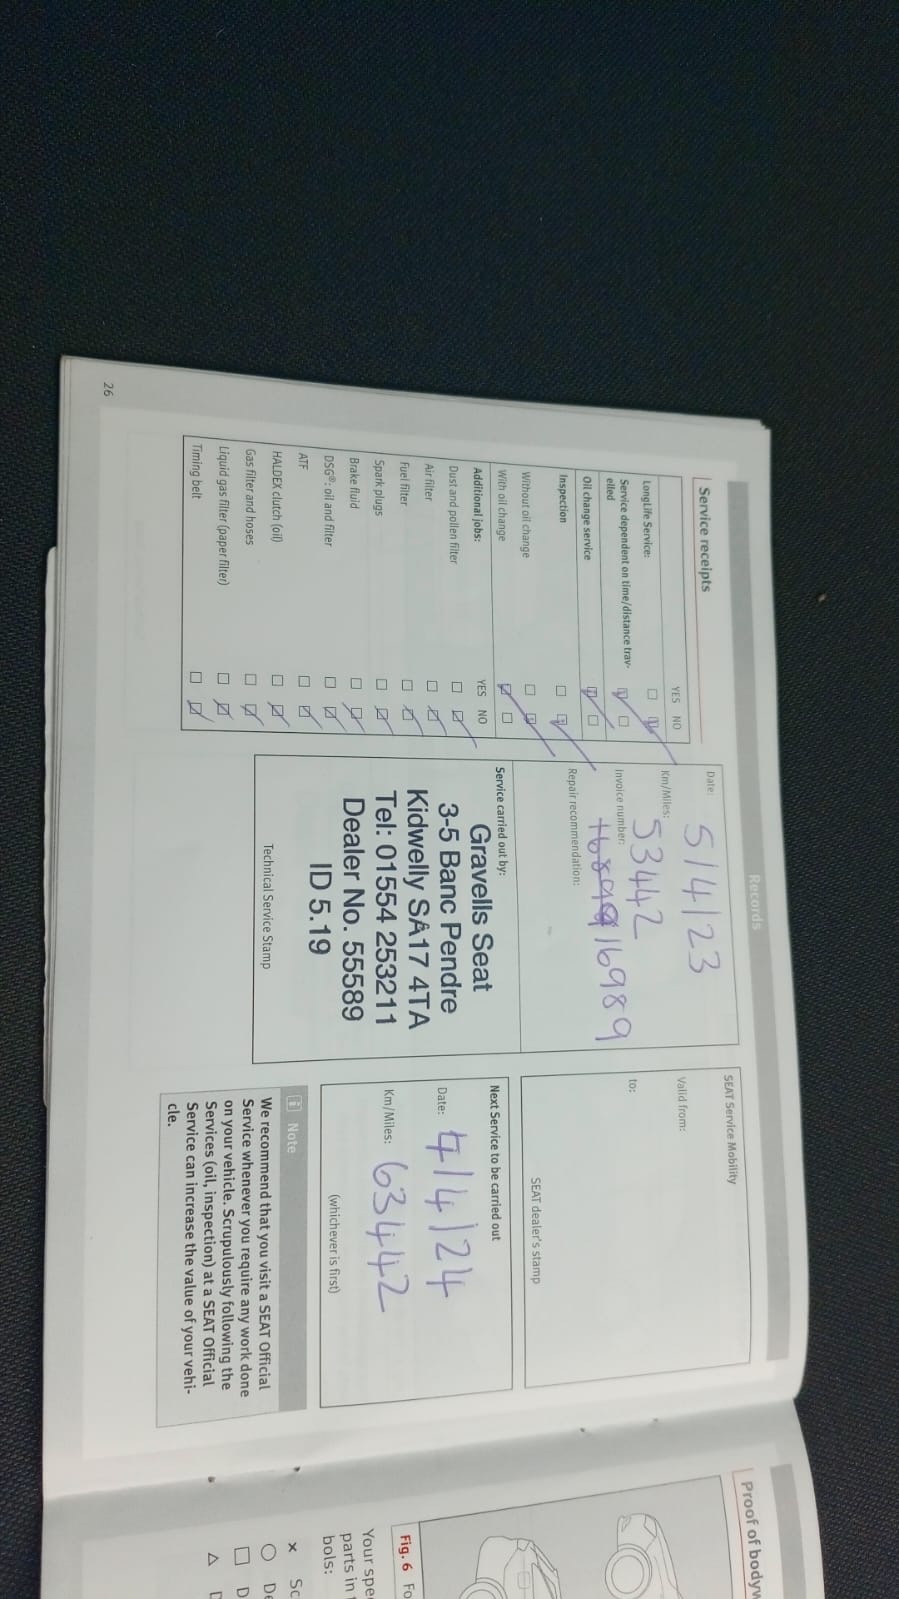 Records
Service receipts
YES NO
LongLife Service:
Service dependent on time/distance trav-
elled
Oil change service
Inspection
Without oil change
With oil change
Additional jobs: YES NO
Dust and pollen filter
Air filter
Fuel filter
Spark plugs
Brake fluid
DSG®: oil and filter
ATF
HALDEX clutch (oil)
Gas filter and hoses
Liquid gas filter (paper filter)
Timing belt
26
Date: 5/4/23
Km/Miles: 53442
Invoice number: 16989
Repair recommendation:
Service carried out by:
Gravells Seat
3-5 Banc Pendre
Kidwelly SA17 4TA
Tel: 01554 253211
Dealer No. 55589
ID 5.19
Technical Service Stamp
SEAT Service Mobility
Valid from:
to:
SEAT dealer's stamp
Next Service to be carried out
Date: 4/4/24
Km/Miles: 63442
(whichever is first)
i Note
We recommend that you visit a SEAT Official
Service whenever you require any work done
on your vehicle. Scrupulously following the
Services (oil, inspection) at a SEAT Official
Service can increase the value of your vehi-
cle.
Proof of bodyw
Fig. 6 Fo
Your spe
parts in
bols:
× Sc
○ De
□ D
△ D